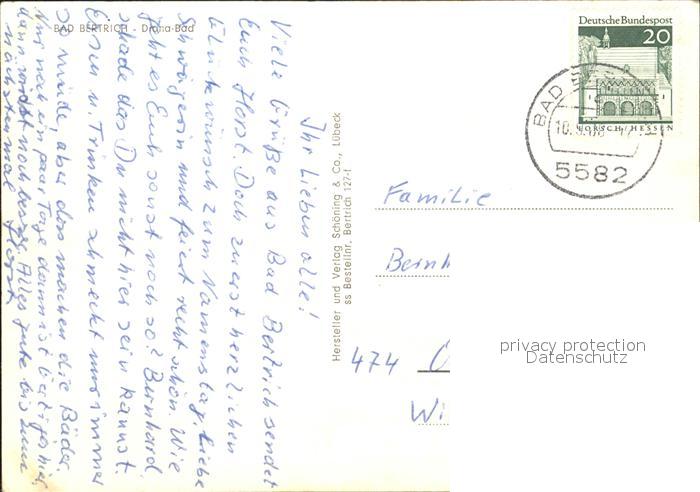 BAD BERTRICH - Diana-Bad
Ihr Lieben alle!
Viele Grüße aus Bad Bertrich sendet
Euch Horst. Doch zuerst herzlichen
Glückwunsch zum Namenstag, liebe
Schwägerin und feiert recht schön. Wie
geht es Euch sonst noch so? Bernhard
schade das Du nicht hier sein kannst.
Essen u. Trinken schmeckt uns immer
so müde, aber das machen die Bäder.
Nur noch ein paar Tage dann ist hier
dann noch Alles gute bis zum
nächsten mal Horst
Hersteller und Verlag Schöning & Co., Lübeck
ss Bestellnr, Bertrich 127-f
Deutsche Bundespost
20
LORSCH/HESSEN
BAD
5582
Familie
Bernh
474
Wi
privacy protection
Datenschutz